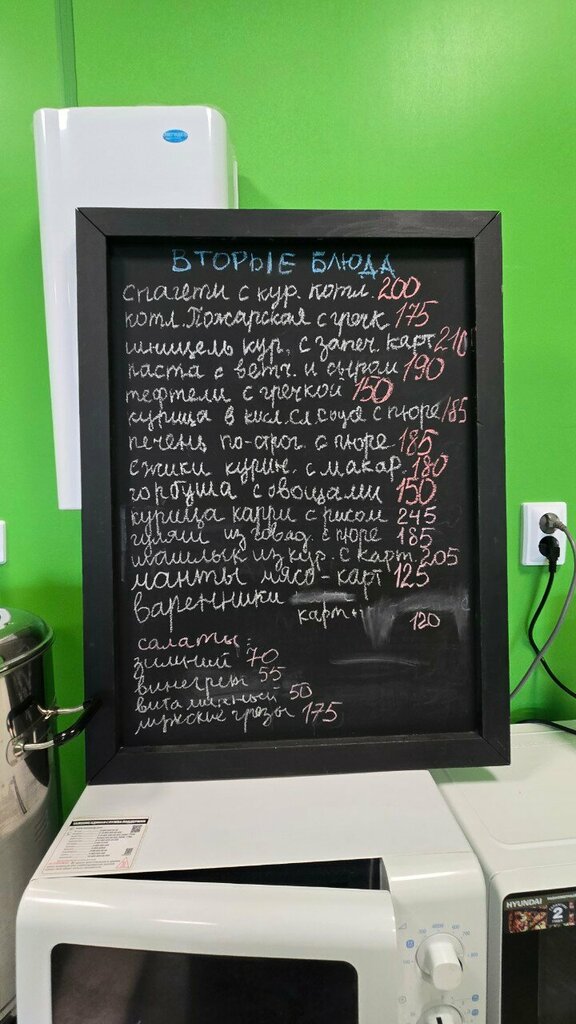 ВТОРЫЕ БЛЮДА
спагети с кур. котл. 200
котл. Пожарская с греч к 175
шницель кур. с запеч. карт 210
паста с ветч. и сыром 190
тефтели с гречкой 150
курица в кисл. сл. соусе с пюре 185
печень по-строг. с пюре 185
ёжики курин. с макар. 180
горбуша с овощами 150
курица карри с рисом 245
гуляш из говяд. с пюре 185
шашлык из кур. с карт. 205
манты мясо-карт 125
вареники
карт 120
салаты:
зимний 70
винегрет 55
витаминный 50
мужские грезы 175
HYUNDAI
2